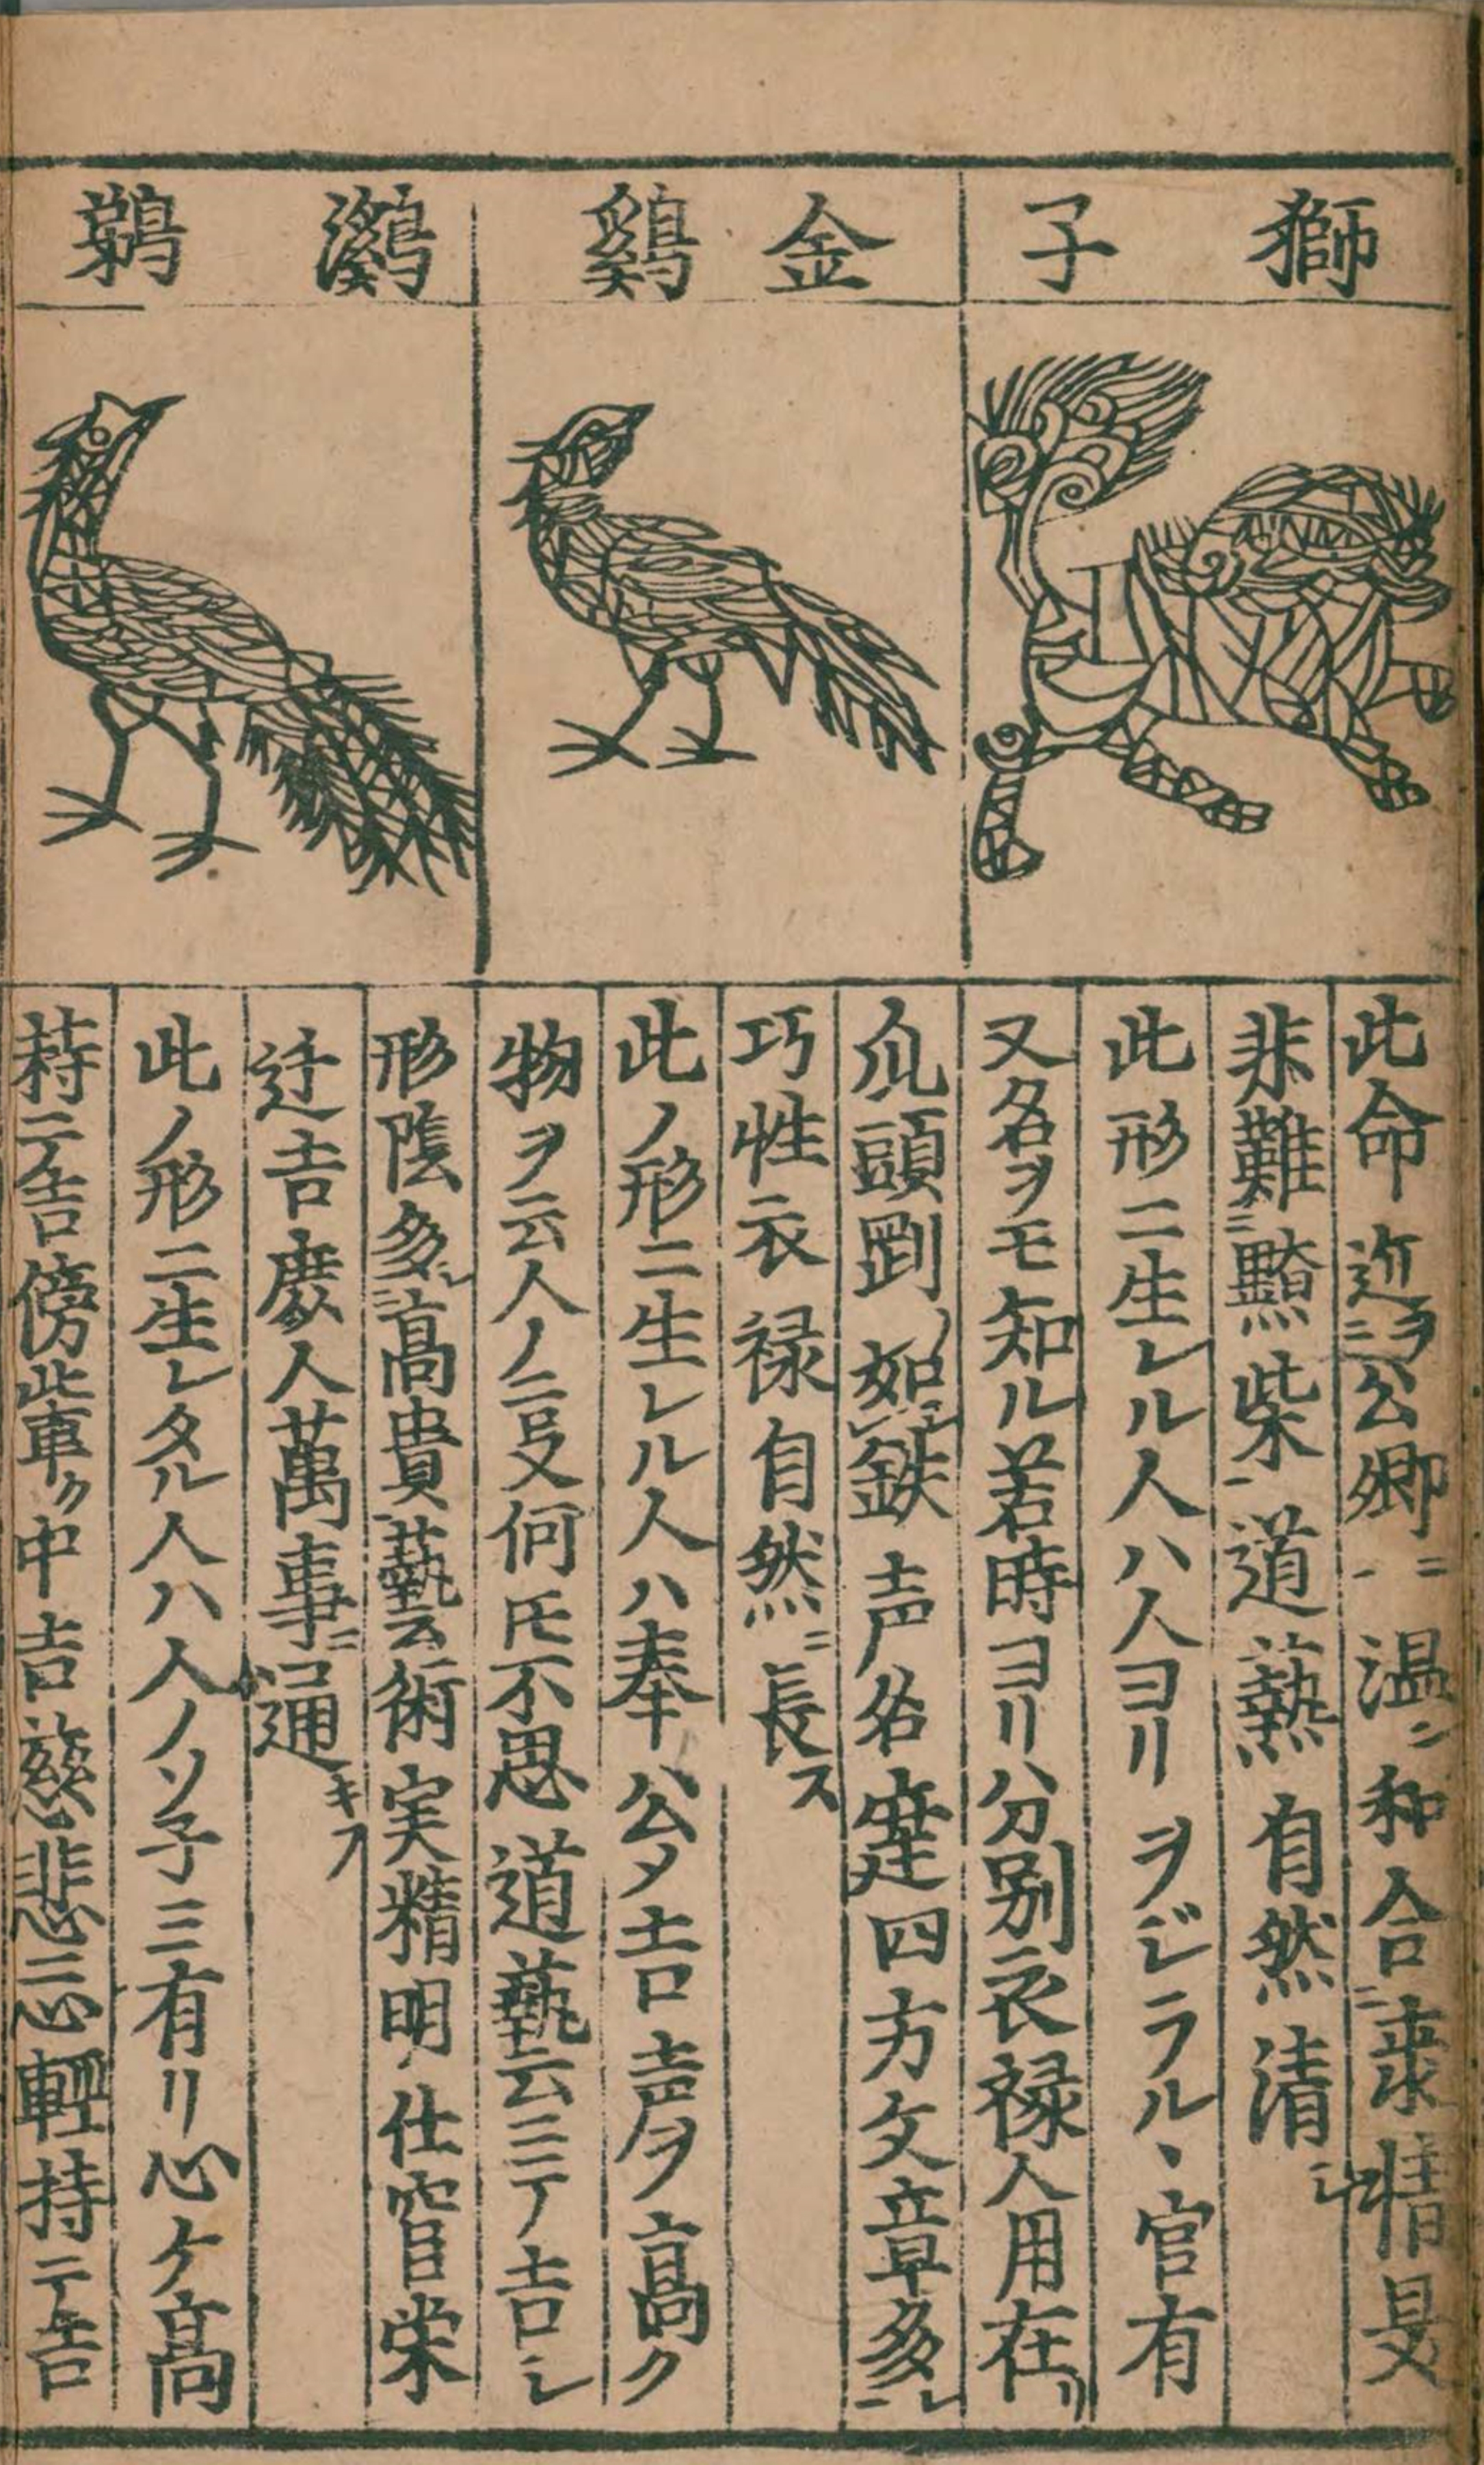 獅子
金鷄
鸂鵣
此命近ヲ公卿ニ温ニ和合ニ衆情旻
非難ニ黥柴道藝有然清シ
此形ニ生レル人ハ人ヨリヲジラル、官有
又名ヲモ知ル若時ヨリハ分別衣禄人用在リ
爪頭剛ノ如シ鉄声名蓮四方文章多シ
巧性衣禄自然ニ長ス
此ノ形ニ生レル人ハ奉公メ吉声ヲ高ク
物ヲ云人ノ言又何圧不思道藝云ニテ吉シ
形陰多シ高貴藝術実精明仕官栄
迂吉庶人萬事ニ通
此ノ形ニ生レタル人ハ人ノソ子三有リ心ケ高
持テ吉傍此車ク中吉慈悲ニ心軽持テ吉